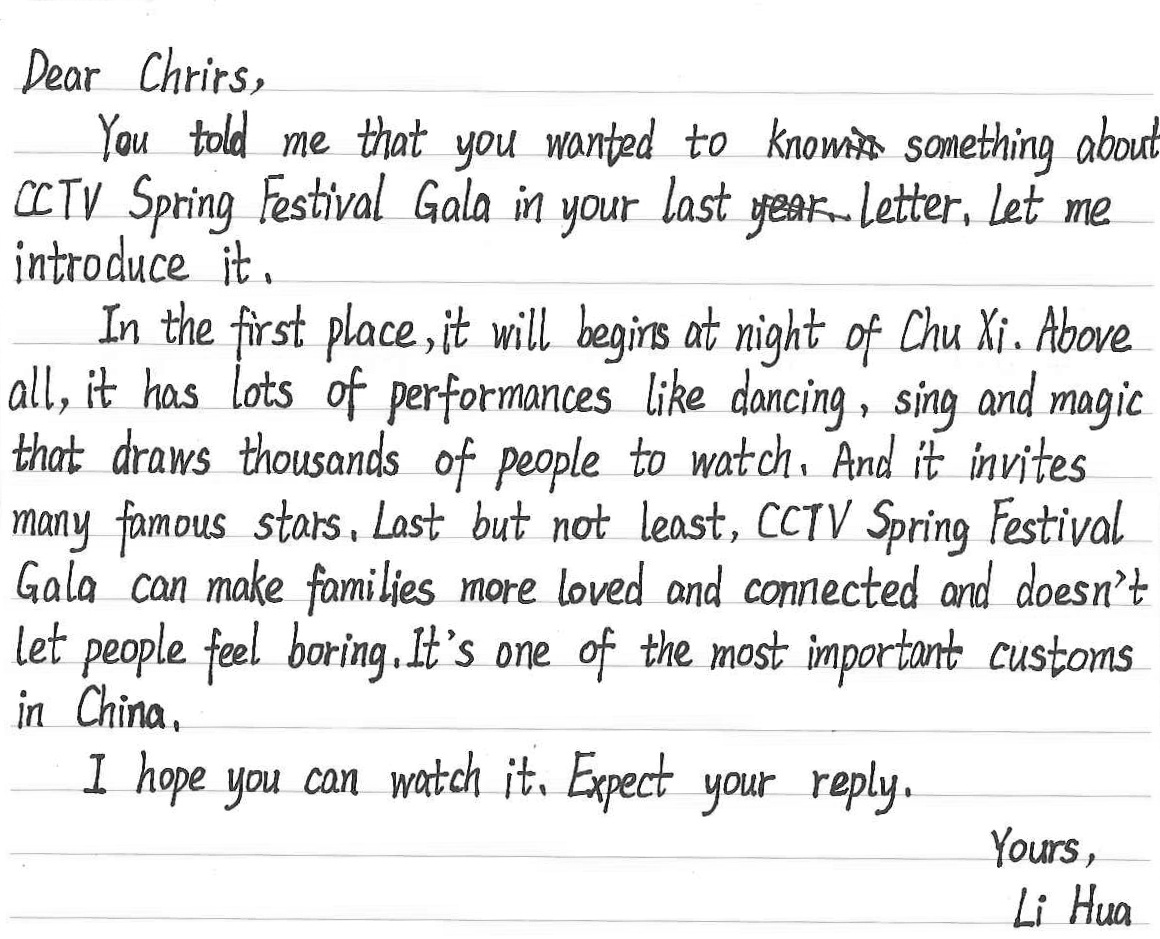 Dear Chrirs,
You told me that you wanted to know something about
CCTV Spring Festival Gala in your last letter. Let me
introduce it.
In the first place, it will begins at night of Chu Xi. Above
all, it has lots of performances like dancing, sing and magic
that draws thousands of people to watch. And it invites
many famous stars. Last but not least, CCTV Spring Festival
Gala can make families more loved and connected and doesn't
let people feel boring. It's one of the most important customs
in China.
I hope you can watch it. Expect your reply.
Yours,
Li Hua